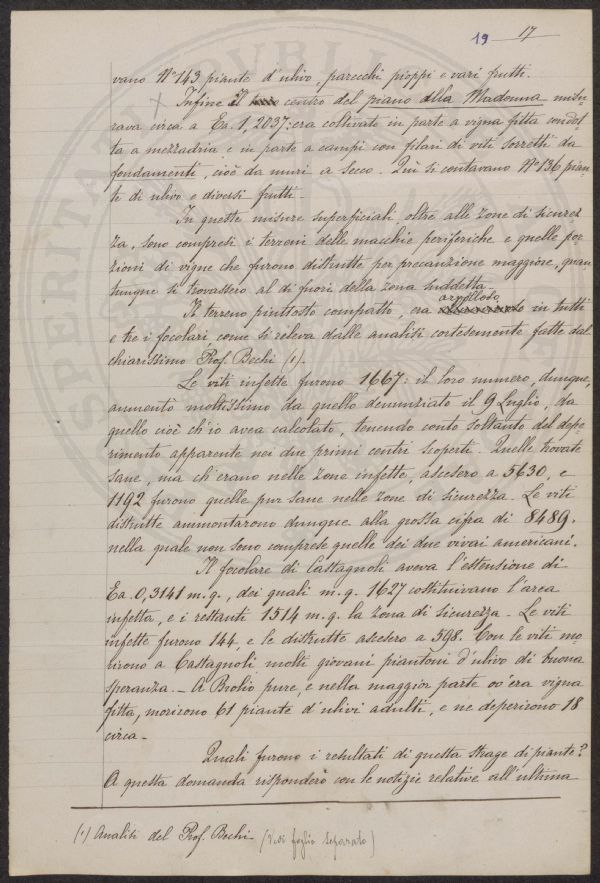 19 17
vano No 143 piante d'ulivo, parecchi pioppi e vari frutti.
Infine il centro del piano della Madonna misu-
rava circa a Ea. 1,2037: era coltivato in parte a vigna fitta condot-
ta a mezzadria e in parte a campi con filari di viti sorretti da
fondamenti, cioè da muri a secco. Qui si contavano No 136 pian-
te di ulivo e diversi frutti -
In queste misure superficiali, oltre alle zone di sicurez-
za, sono compresi i terreni delle macchie periferiche e quelle por-
zioni di vigne che furono distrutte per precauzione maggiore, quan-
tunque si trovassero al di fuori della zona suddetta -
argilloso
Il terreno piuttosto compatto, era in tutti
e tre i focolari, come si rileva dalle analisi cortesemente fatte dal
chiarissimo Prof. Bechi (1).
Le viti infette furono 1667: il loro numero, dunque,
aumentò moltissimo da quello denunziato il 9 Luglio, da
quello cioè ch'io avea calcolato, tenendo conto soltanto del depe-
rimento apparente nei due primi centri scoperti. Quelle trovate
sane, ma ch'erano nelle zone infette, ascesero a 5630, e
1192 furono quelle pur sane nelle zone di sicurezza - Le viti
distrutte ammontarono dunque alla grossa cifra di 8489,
nella quale non sono comprese quelle dei due vivai americani.
Il focolare di Castagnoli aveva l'estensione di
Ea. 0,3141 m.q., dei quali m.q. 1627 costituivano l'area
infetta, e i restanti 1514 m.q. la zona di sicurezza - Le viti
infette furono 144, e le distrutte ascesero a 598. Con le viti mo-
rirono a Castagnoli molti giovani piantoni d'ulivo di buona
speranza. - A Brolio pure, e nella maggior parte ov'era vigna
fitta, morirono 61 piante d'ulivi adulti, e ne deperirono 18
circa -
Quali furono i resultati di questa strage di piante?
A questa domanda risponderò con le notizie relative all'ultima
(1) Analisi del Prof. Bechi (Vedi foglio separato)